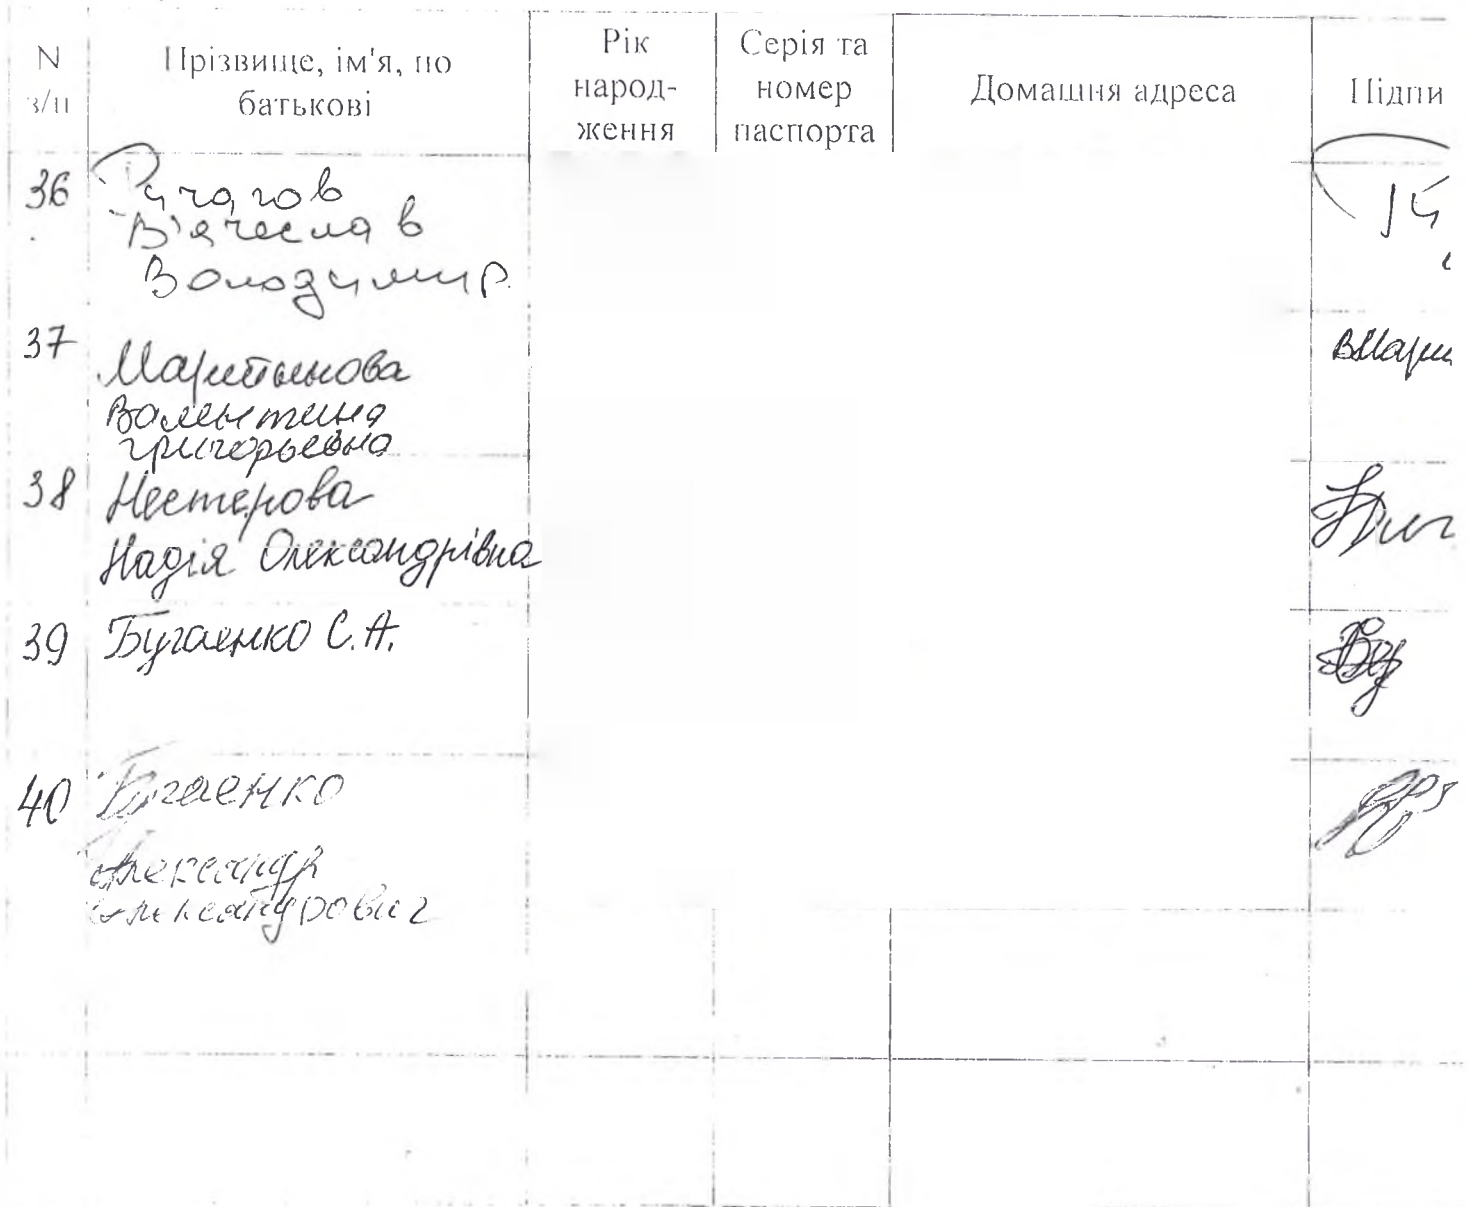 N з/п
Прізвище, ім'я, по батькові
Рік народ-
ження
Серія та номер паспорта
Домашня адреса
Підпи
36
Ричагов
В'ячеслав
Володимир.
37
Мартынова
Валентина
григорьевна
ВМари
38
Нестерова
Надія Олександрівна
39
Бугаенко С.А.
40
Бугаенко
Александр
Александрович